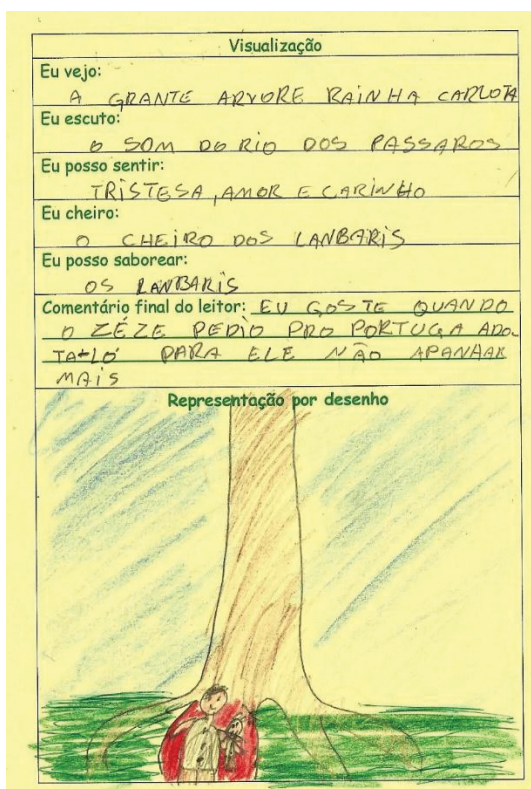 Visualização
Eu vejo:
A GRANTE ARVORE RAINHA CARLOTA
Eu escuto:
O SOM DO RIO DOS PASSAROS
Eu posso sentir:
TRISTESA, AMOR E CARINHO
Eu cheiro:
O CHEIRO DOS LANBARIS
Eu posso saborear:
OS LANBARIS
Comentário final do leitor: EU GOSTE QUANDO
O ZÉZE PEDIO PRO PORTUGA ADO-
TALO PARA ELE NÃO APANHAR
MAIS
Representação por desenho